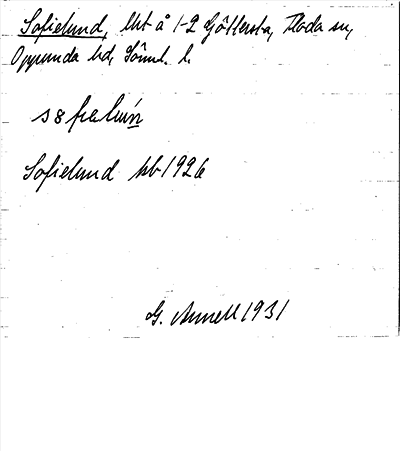 Sofielund, lht å 1-2 Göttersta, Floda sn,
Oppunda hd, Söml. l.
Sofielund hb 1926
G. Annell 1931